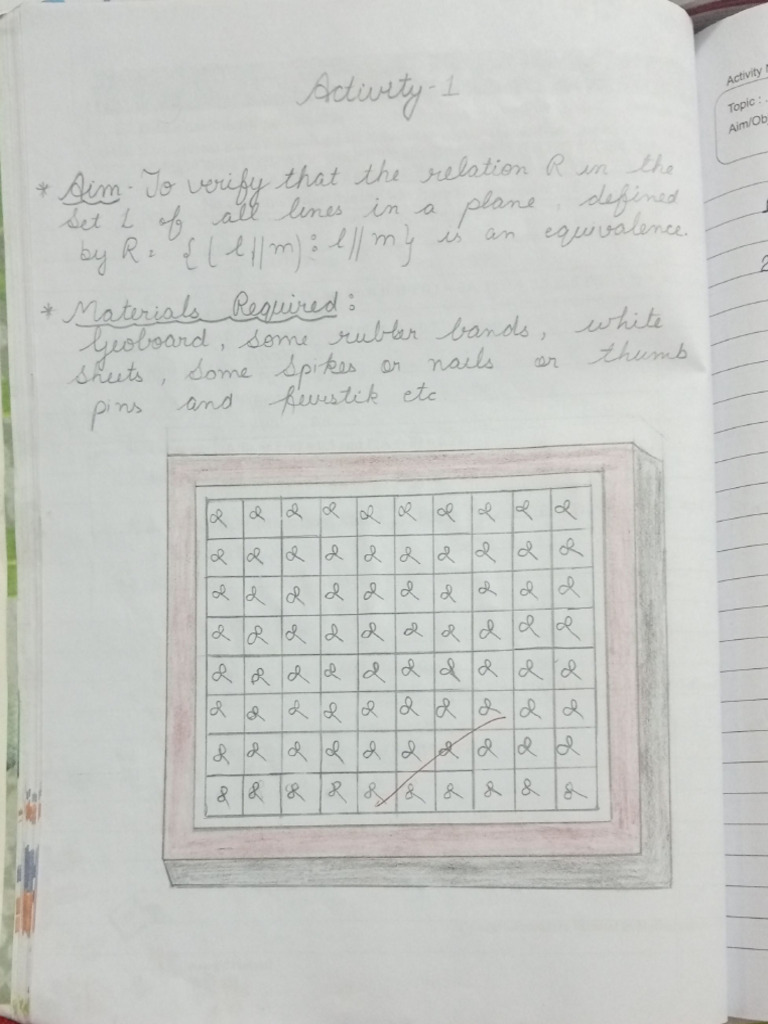 Activity-1
* Aim - To verify that the relation R in the
Set L of all lines in a plane, defined
by R = { ( l || m) : l || m } is an equivalence.
* Materials Required :
Geoboard, some rubber bands, white
sheets, some spikes or nails or thumb
pins and fevistik etc
Activity
Topic :
Aim/Ob